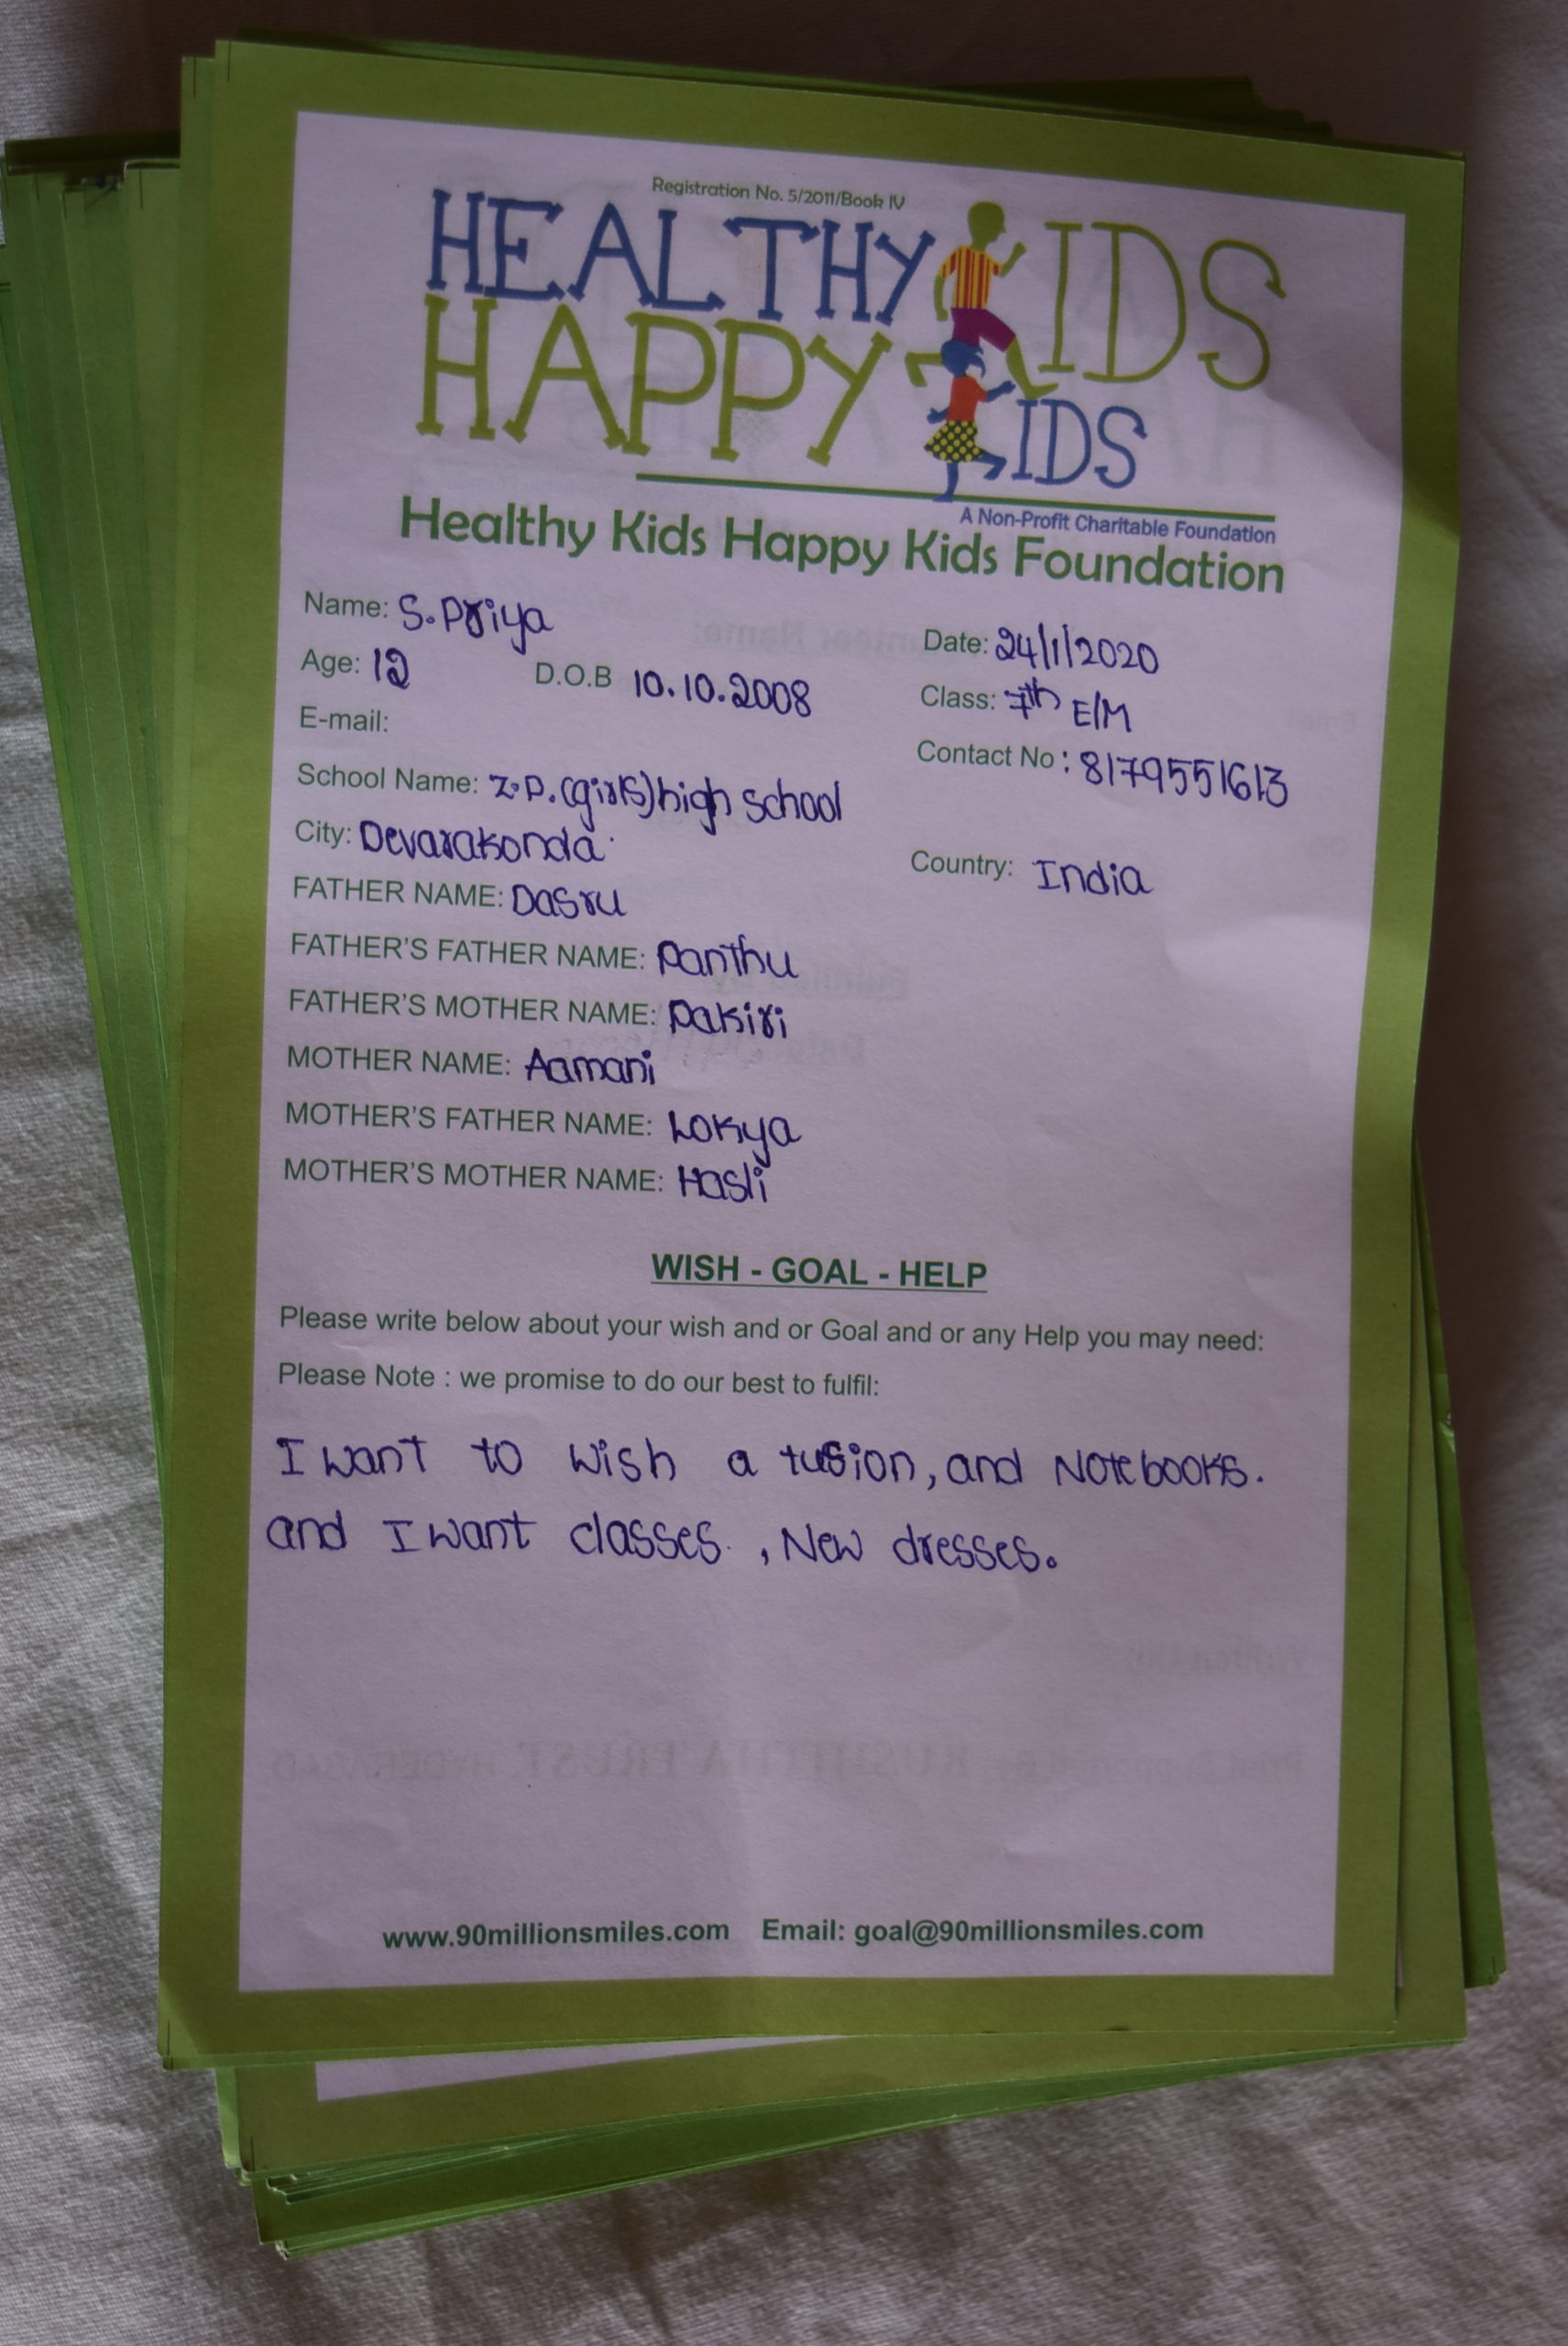 Registration No. 5/2011/Book IV
HEALTHY KIDS
HAPPY KIDS
A Non-Profit Charitable Foundation
Healthy Kids Happy Kids Foundation
Name: S. Priya
Date: 24/1/2020
Age: 12 D.O.B 10.10.2008
Class: 7th E/M
E-mail:
Contact No : 8179551613
School Name: Z.P. (girls) high school
City: Devarakonda
Country: India
FATHER NAME: Dasru
FATHER'S FATHER NAME: Panthu
FATHER'S MOTHER NAME: Pakiri
MOTHER NAME: Aamani
MOTHER'S FATHER NAME: Lokya
MOTHER'S MOTHER NAME: Hasli
WISH - GOAL - HELP
Please write below about your wish and or Goal and or any Help you may need:
Please Note : we promise to do our best to fulfil:
I want to wish a tusion, and Notebooks.
and I want classes. , New dresses.
www.90millionsmiles.com Email: goal@90millionsmiles.com